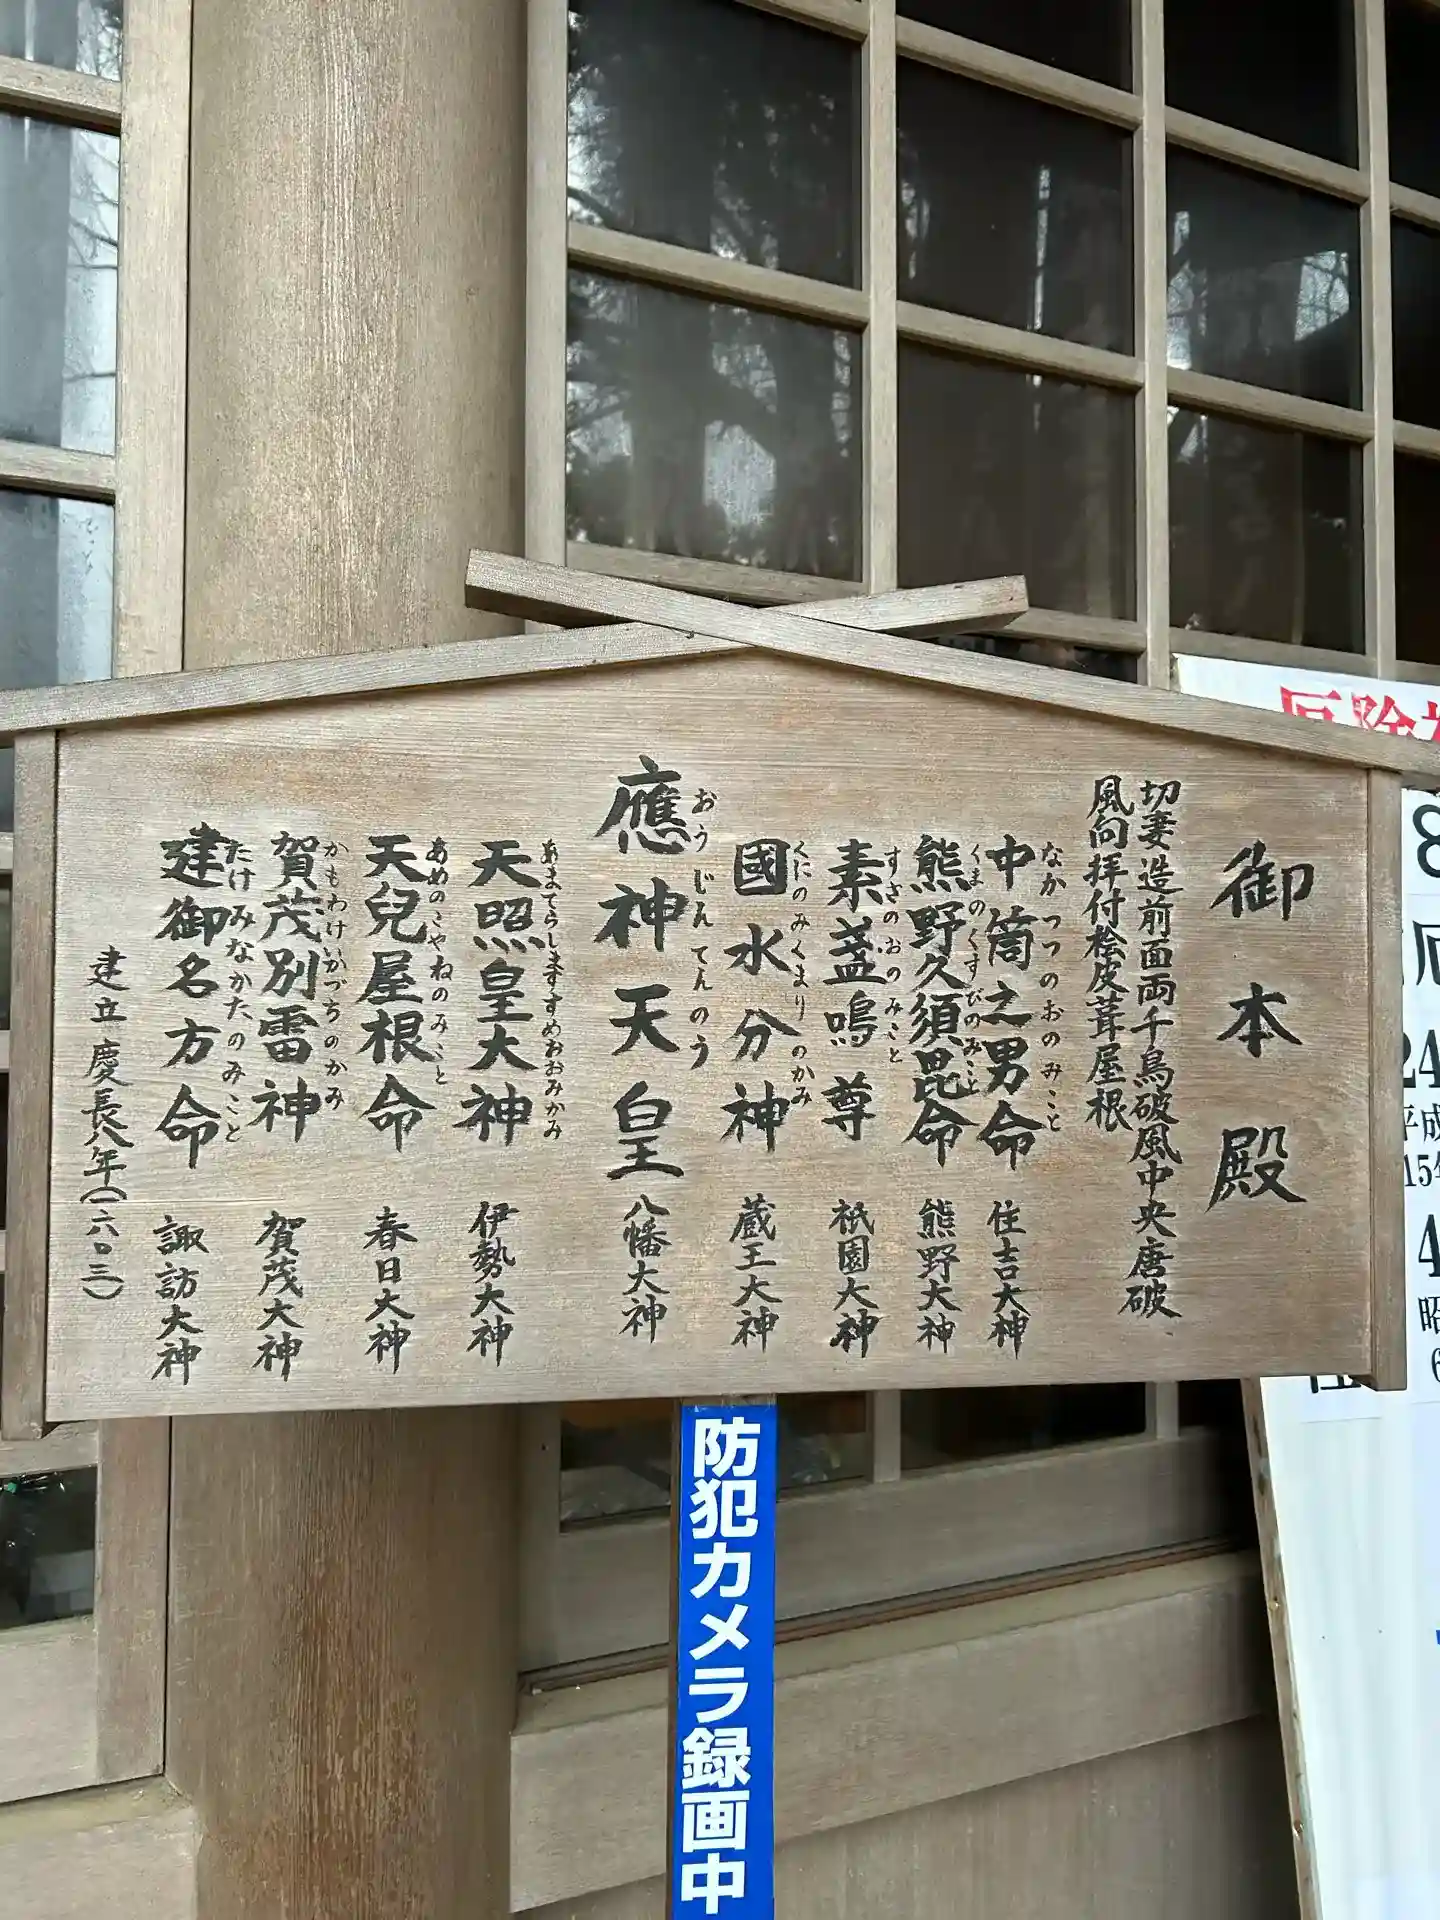 御本殿
切妻造前面両千鳥破風中央唐破
風向拝付桧皮葺屋根
なかつつのおのみこと
中筒之男命 住吉大神
くまのくすびのみこと
熊野久須毘命 熊野大神
すさのおのみこと
素盞嗚尊 祇園大神
くにのみくまりのかみ
國水分神 蔵王大神
おうじんてんのう
應神天皇 八幡大神
あまてらしますすめおおみかみ
天照皇大神 伊勢大神
あめのこやねのみこと
天兒屋根命 春日大神
かもわけいかづちのかみ
賀茂別雷神 賀茂大神
たけみなかたのみこと
建御名方命 諏訪大神
建立慶長八年(一六〇三)
防犯カメラ録画中
厄除
8
厄
24
平成
15
4
昭
6